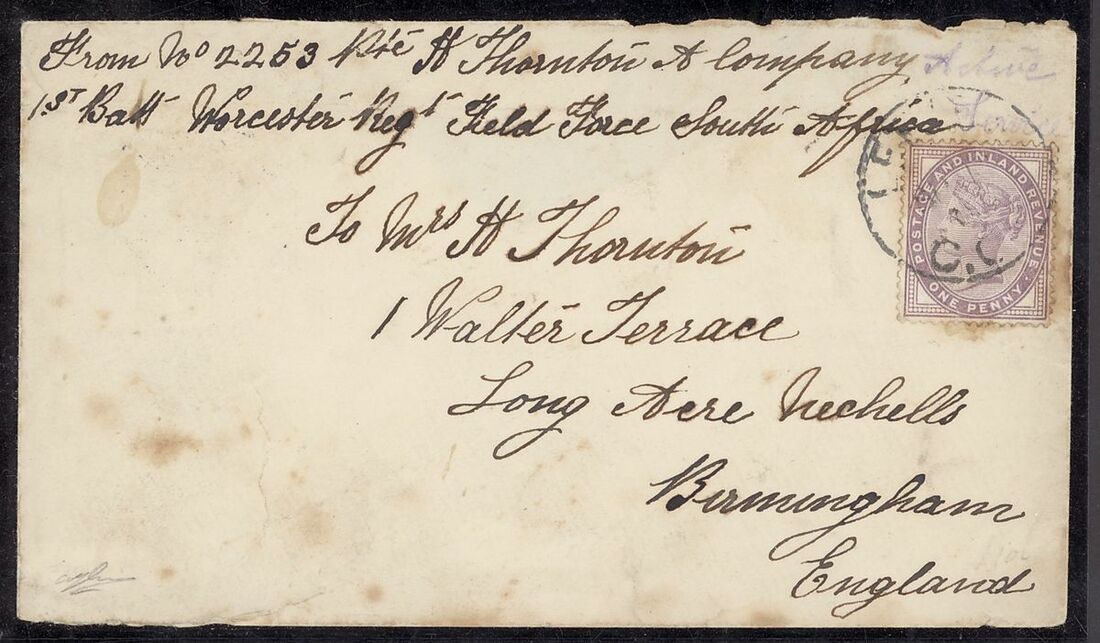 From No 2253 Pte H Thornton A Company
1ST Batt Worcester Regt Field Force South Africa
Active
Service
To Mrs H Thornton
1 Walter Terrace
Long Acre Nechells
Birmingham
England
POSTAGE AND INLAND REVENUE
ONE PENNY